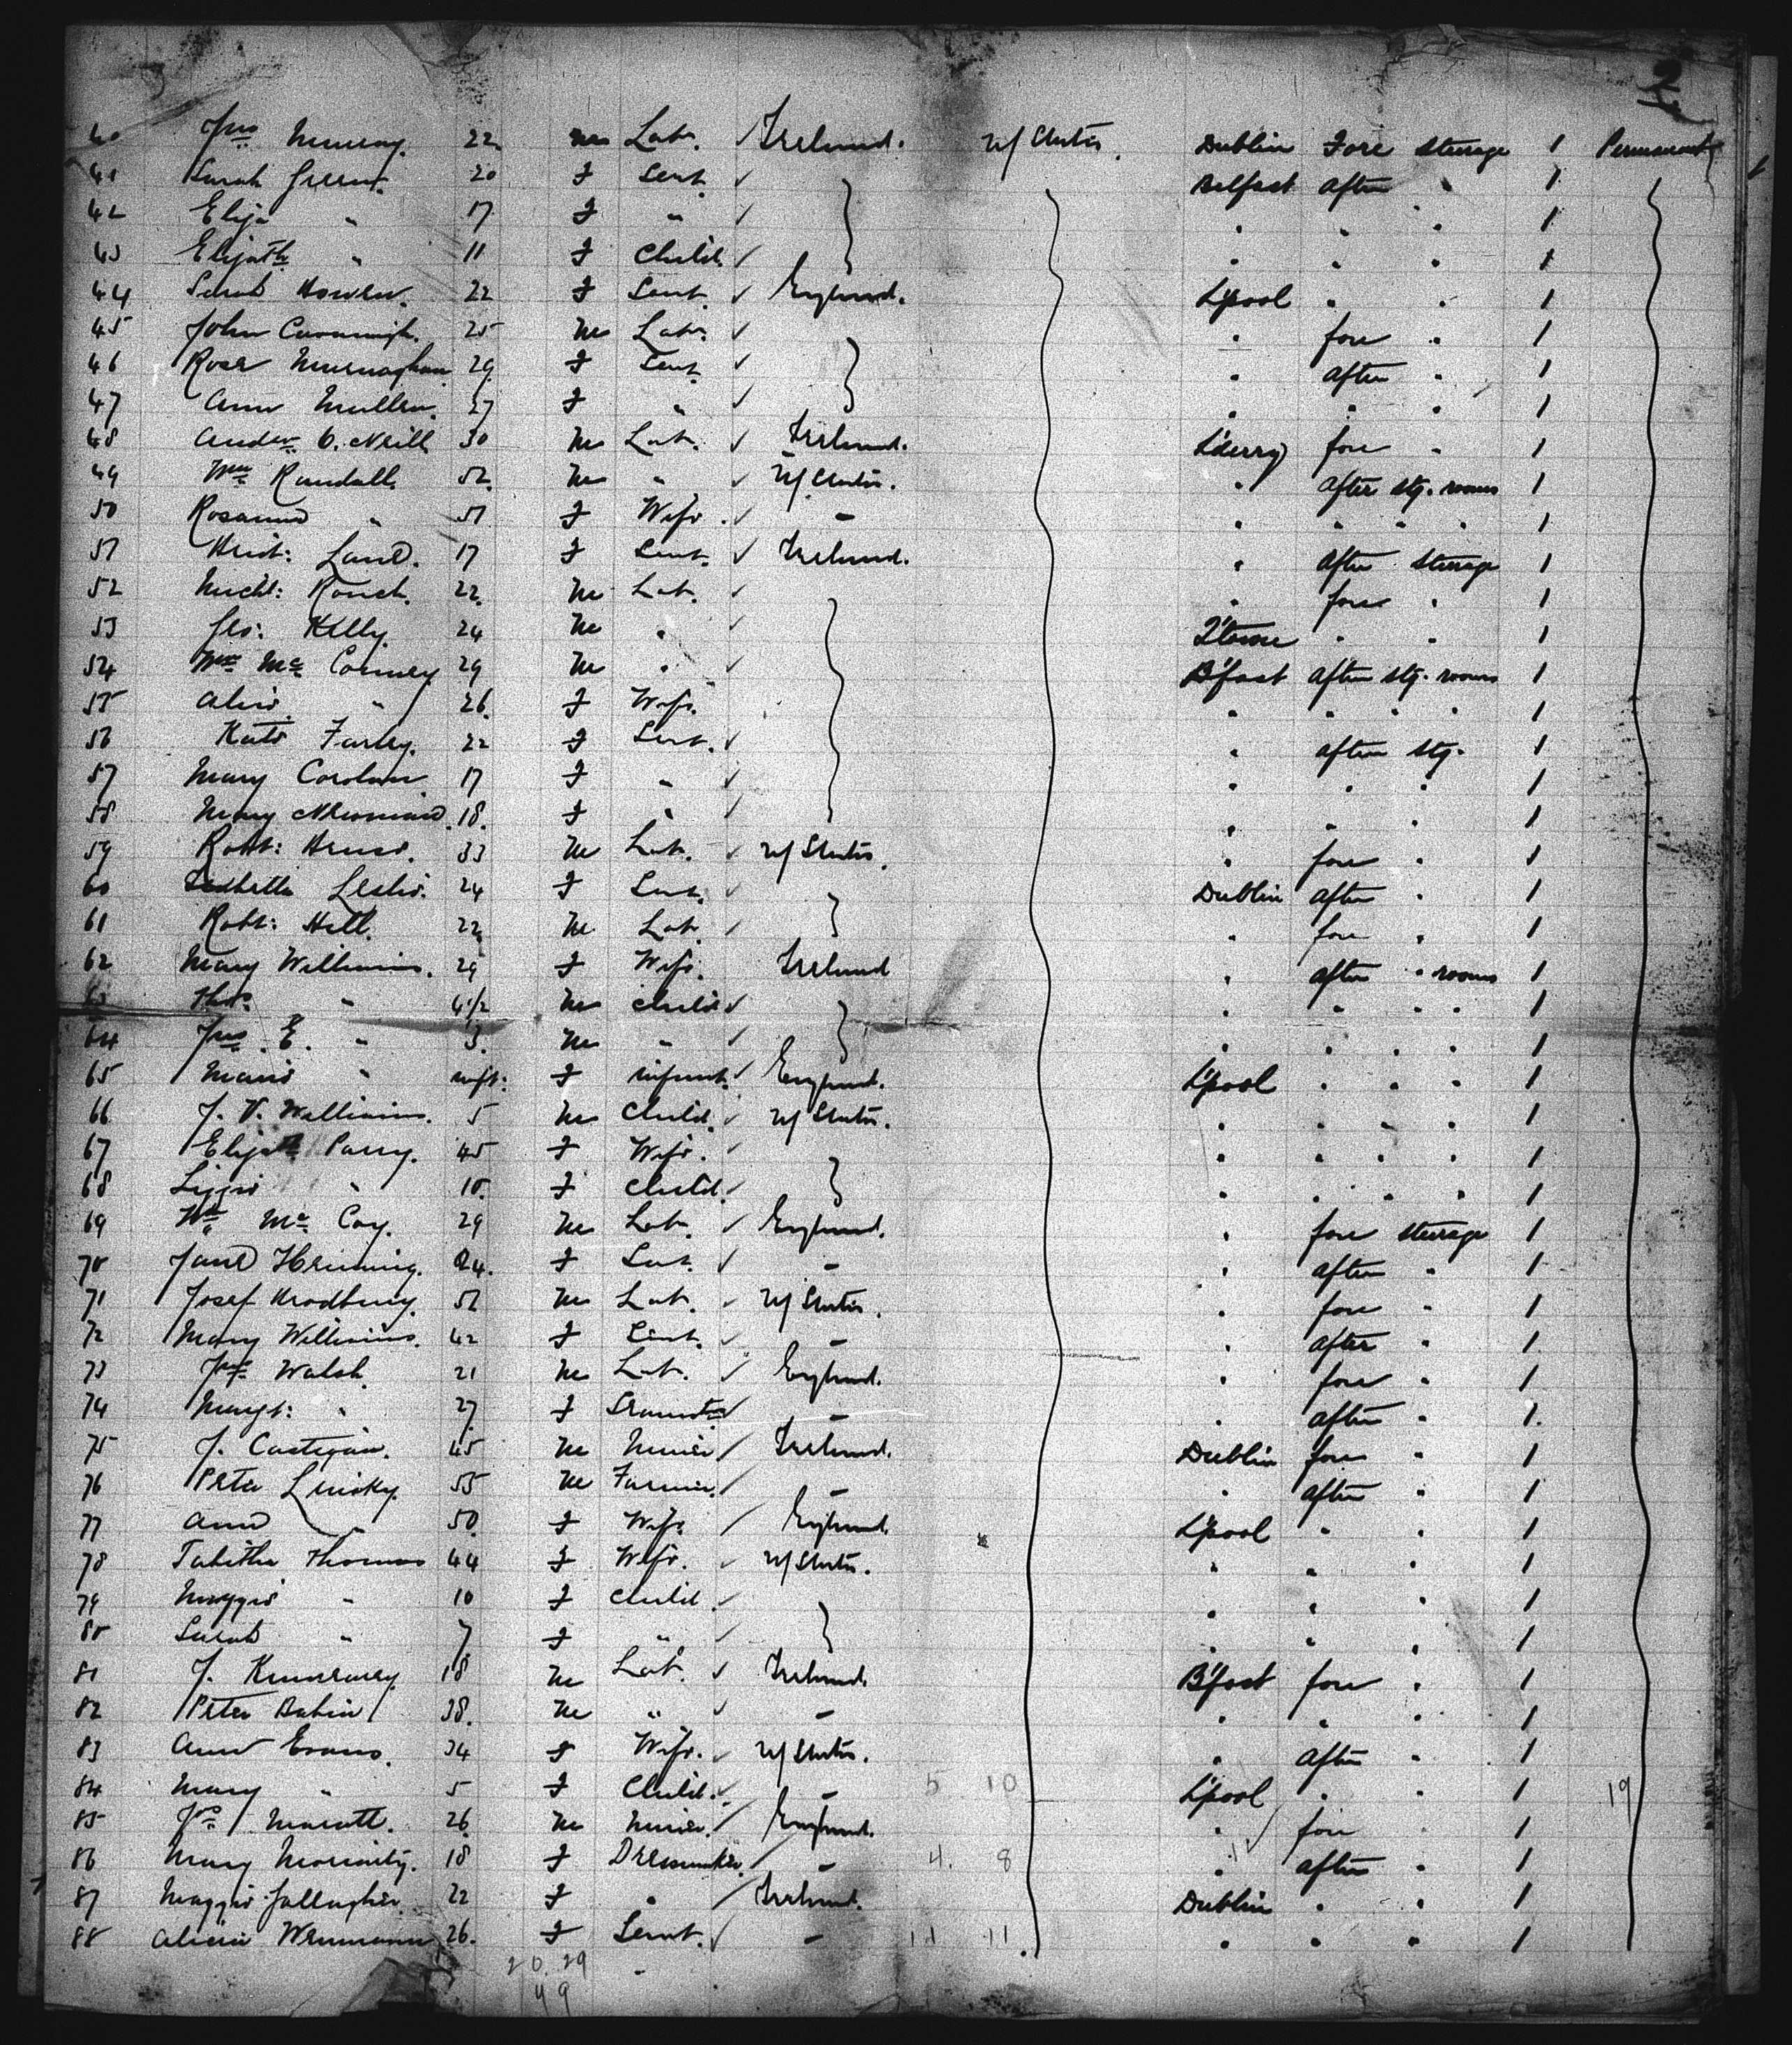 2
40 Jno Murray. 22 m Lab. Ireland. U/States. Dublin Fore steerage 1 Permanent
41 Sarah Green. 20 f Servt. ✓ Belfast after " 1
42 Eliza " 17 f " ✓ " " " 1
43 Elizath " 11 f Child. ✓ " " " 1
44 Sarah 22 f Servt. ✓ England. L'pool " " 1
45 John Cavanagh. 25 m Labr. ✓ " fore " 1
46 Rose Murnaghan 29 f Servt. ✓ " after " 1
47 Ann Mullen. 27 f " ✓ " " " 1
48 Andw O'Neill 30 m Lab. ✓ Ireland. L'derry fore " 1
49 Wm Randall. 52. m " ✓ U/States. " after stg. rooms 1
50 Rosanna " 51 f Wife. ✓ " " " " " 1
51 Lane. 17 f Servt. ✓ Ireland. " after steerage 1
52 Michl: Roach. 22. m Lab. ✓ " fore " 1
53 Geo: Kelly. 24 m " ✓ Q'town " " 1
54 Wm Mc 29 m " ✓ B'fast after stg. rooms 1
55 Alice " 26. f Wife. " " " " 1
56 Kate Farley. 22 f Servt. ✓ " after stg. 1
57 Mary Carolan 17 f " ✓ " " " 1
58 Mary 18. f " ✓ " " " 1
59 Robt: 33 m Lab. ✓ U/States. " fore " 1
60 Isabella Leslie. 24 f Servt. ✓ Dublin after " 1
61 Robt: Hill. 22. m Lab. ✓ " fore " 1
62 Mary Williams. 29 f Wife. Ireland " after " rooms 1
63 Thos. " 4 1/2 m child ✓ " " " " 1
64 Jno. E. " 3. m " ✓ " " " " 1
65 " inft: f infant. ✓ England. L'pool " " " 1
66 J. V. Williams. 5 m Child. ✓ U/States. " " " " 1
67 Elizath Parry. 45 f Wife. ✓ " " " " 1
68 Lizzie " 10. f child. ✓ " " " " 1
69 Wm Mc Coy. 29 m Lab. ✓ England. " fore steerage 1
70 Jane 24. f Servt. ✓ " " after " 1
71 Josef Bradbury. 52 m Lab. ✓ U/States. " fore " 1
72 Mary Williams. 42 f Servt. ✓ " " after " 1
73 Jas. Walsh. 21 m Lab. ✓ England. " fore " 1
74 Margt: " 27 f ✓ " " after " 1
75 J. Costigan. 45 m Miner / Ireland. Dublin fore " 1
76 Peter Linsky. 55 m Farmer. / " " after " 1
77 Ann " 50 f Wife / England. L'pool " " 1
78 Tabitha Thomas 44 f Wife. ✓ U/States. " " " 1
79 Maggie " 10 f child ✓ " " " 1
80 Sarah " 7 f " ✓ " " " 1
81 J. 18 m Lab. ✓ Ireland. B'fast fore " 1
82 Peter 38. m " ✓ " " " " 1
83 Ann Evans. 34 f Wife. ✓ U/States. " after " 1
84 Mary " 5 f Child. ✓ " 5 10 L'pool " " 1 19
85 Jno 26. m Miner. / England. " fore " 1
86 Mary Moriarty. 18 f Dressmaker. / " 4. 8 " after " 1
87 Maggie Gallagher 22 f " / Ireland. Dublin " " 1
88 26. f Servt. ✓ " 11 11 " " " 1
20. 29
49